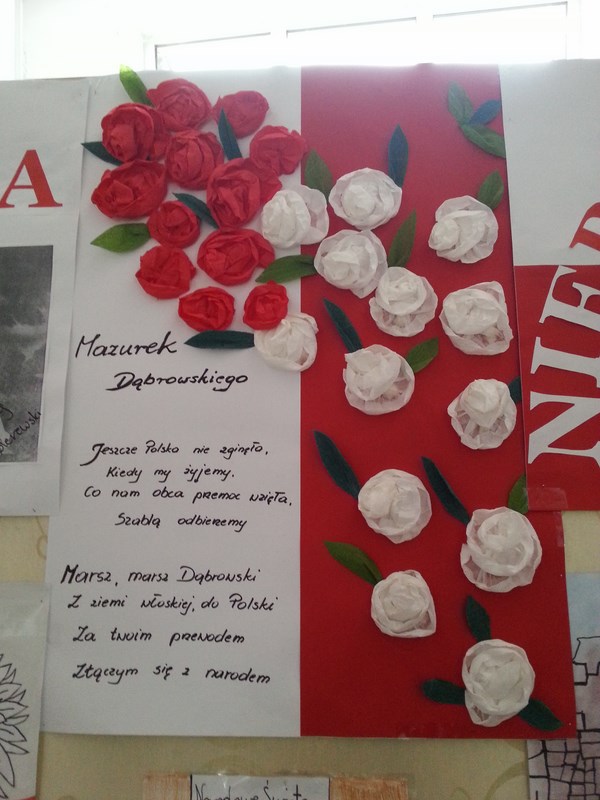 A
Mazurek
Dąbrowskiego
Jeszcze Polska nie zginęła,
Kiedy my żyjemy.
Co nam obca przemoc wzięła,
Szablą odbierzemy
Marsz, marsz Dąbrowski
Z ziemi włoskiej, do Polski
Za twoim przewodem
Złączym się z narodem
NIEP